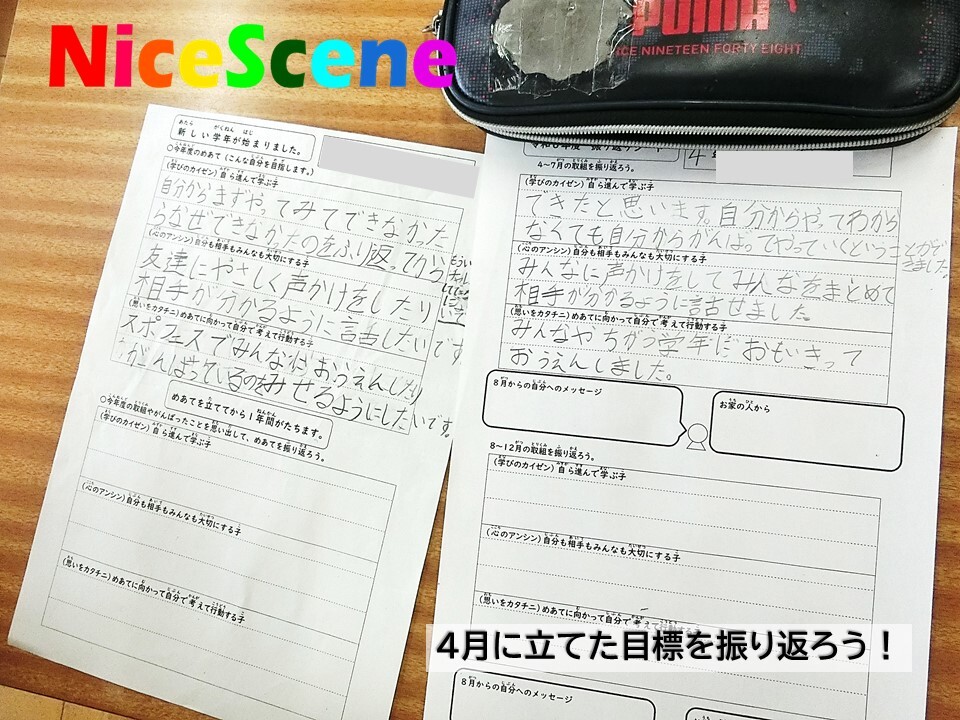 NiceScene
PUMA
CE NINETEEN FORTY EIGHT
新しい学年が始まりました。
○今年度のめあて(こんな自分を目指します。)
(学びのカイゼン)自ら進んで学ぶ子
自分からまずやってみてできなかった
らなぜできなかたのをふり返ってから
(心のアンシン)自分も相手もみんなも大切にする子
友達にやさしく声かけをしたり
相手が分かるように話したいです
(思いをカタチニ)めあてに向かって自分で考えて行動する子
スポフェスでみんなにおうえんしたり
がんばっているのをみせるようにしたいです。
めあてを立ててから1年間がたちます。
○今年度の取組やがんばったことを思い出して、めあてを振り返ろう。
(学びのカイゼン)自ら進んで学ぶ子
(心のアンシン)自分も相手もみんなも大切にする子
(思いをカタチニ)めあてに向かって自分で考えて行動する子
4~7月の取組を振り返ろう。
(学びのカイゼン)自ら進んで学ぶ子
できたと思います。自分からやってわから
なくても自分からがんばってやっていくということができ
ました。
(心のアンシン)自分も相手もみんなも大切にする子
みんなに声かけをしてみんなをまとめて
相手が分かるように話せました。
(思いをカタチニ)めあてに向かって自分で考えて行動する子
みんなやちがう学年におもいきって
おうえんしました。
8月からの自分へのメッセージ
お家の人から
8~12月の取組を振り返ろう。
(学びのカイゼン)自ら進んで学ぶ子
(心のアンシン)自分も相手もみんなも大切にする子
(思いをカタチニ)めあてに向かって自分で考えて行動する子
4月に立てた目標を振り返ろう!
8月からの自分へのメッセージ